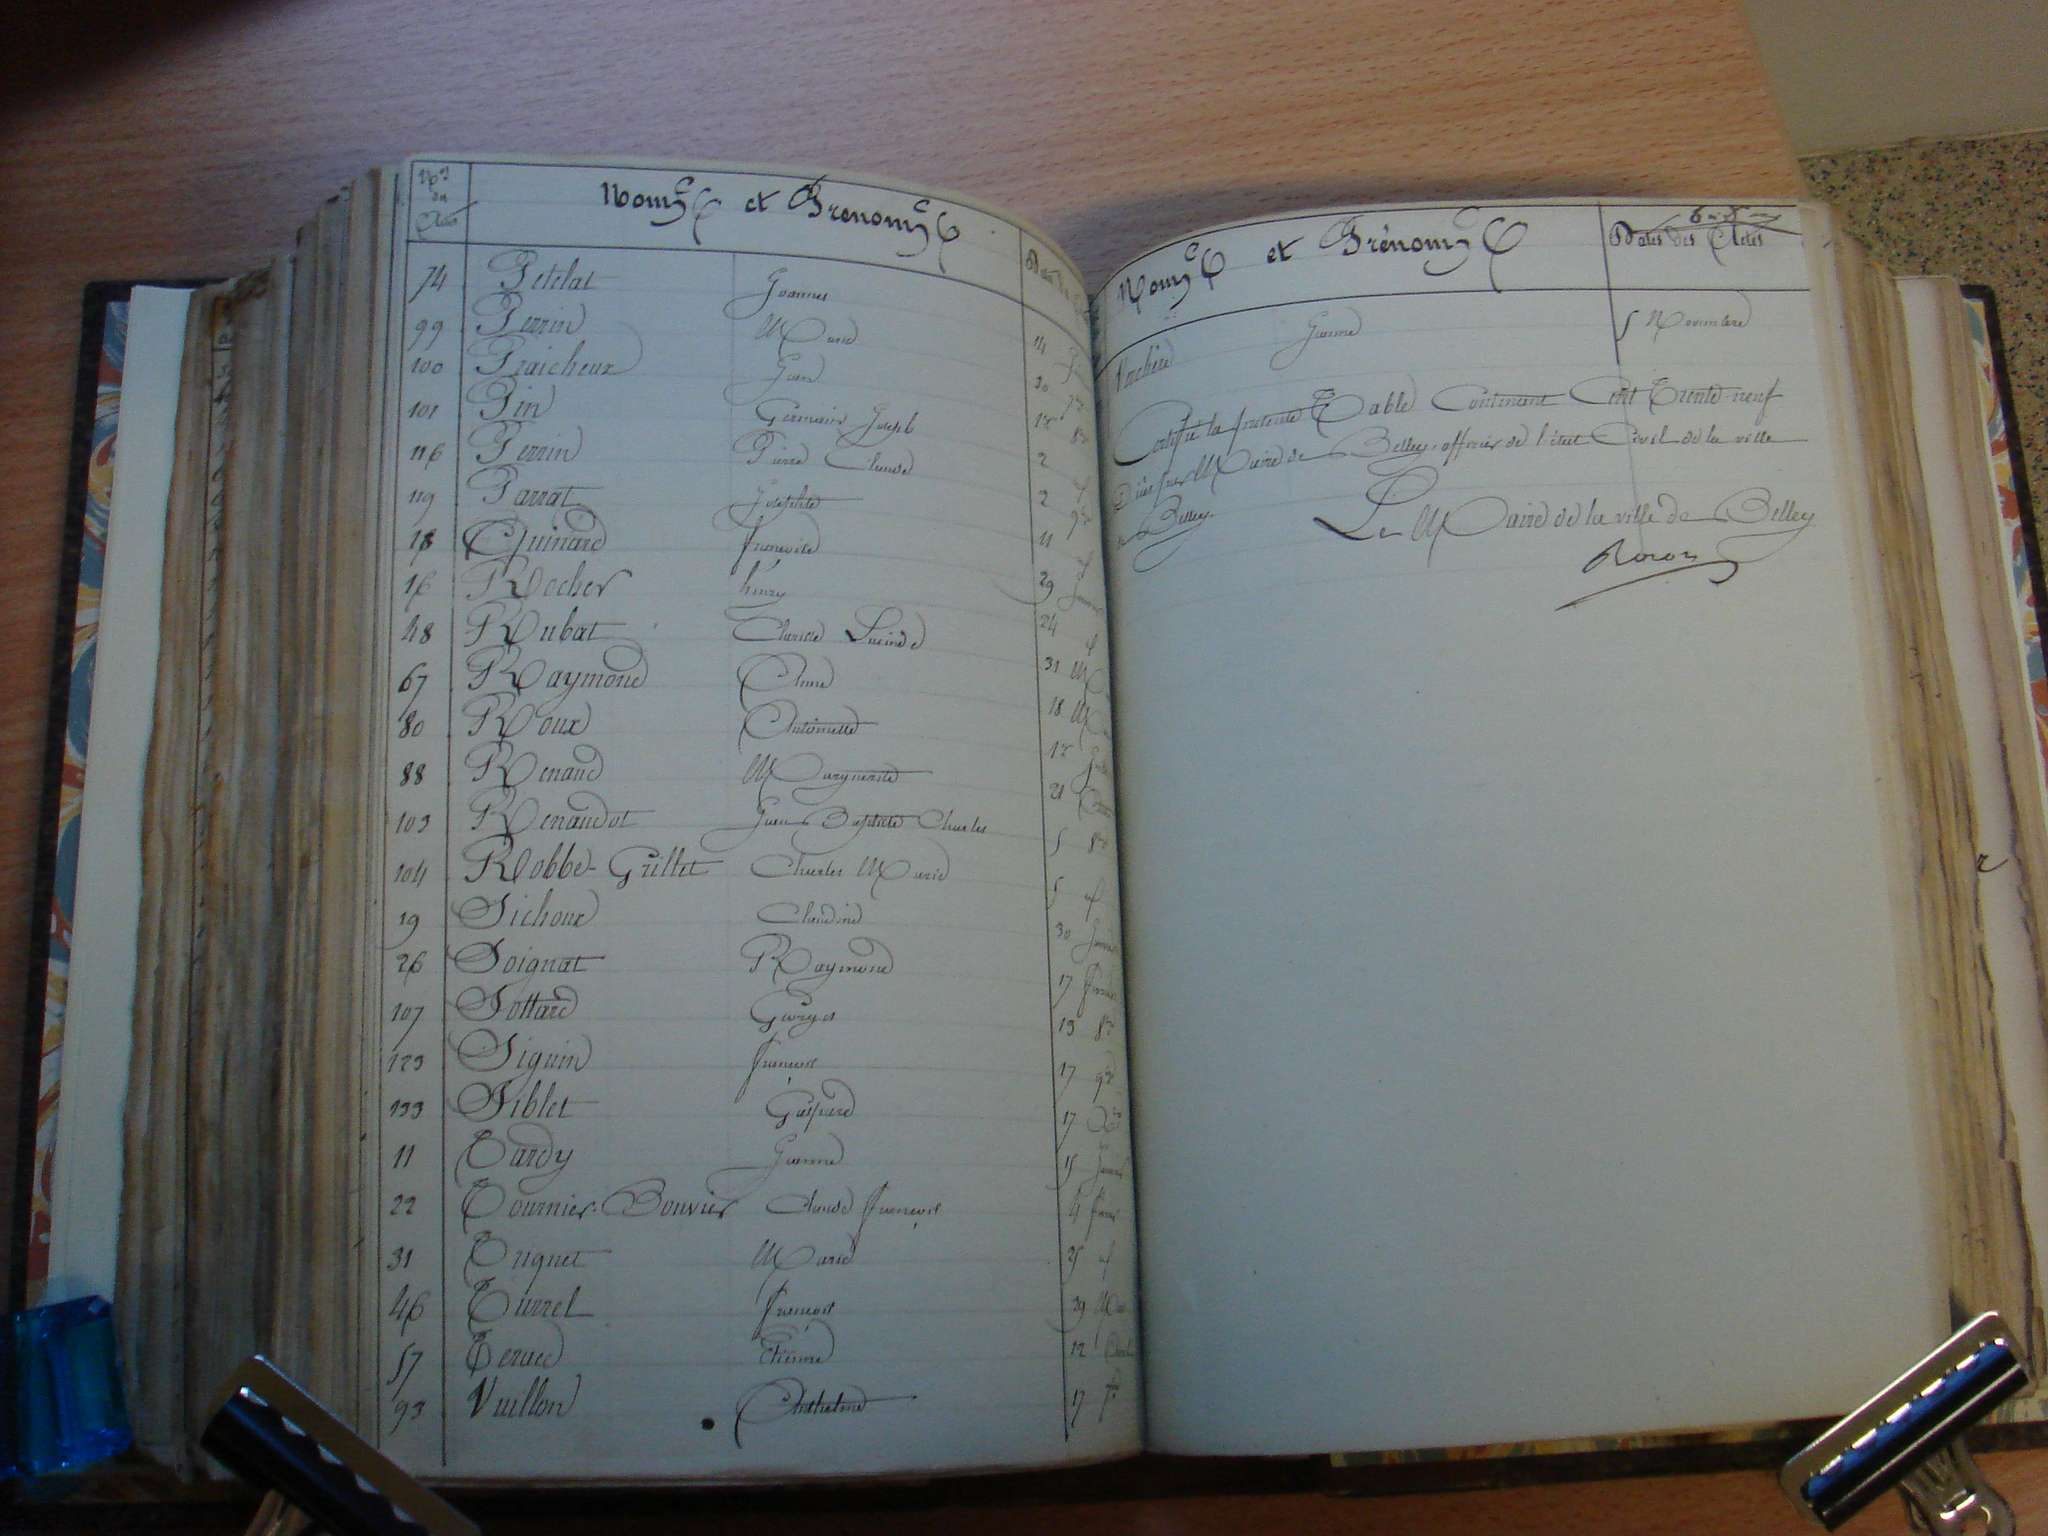 Nos des Actes Noms et Prénoms
74 Petelat Joannes
99 Perrin Marie 14
100 Fraicheux Jean 30 7bre
101 Pin Germain Joseph 1er 8bre
116 Perrin Pierre Claude 2
119 Parrat Josephte 2 9bre
18 Quinard françoise 11
16 Rocher henry 29 Janvier
48 Rubat Claude Lucinde 24
67 Raymond Anne 31
80 Roux Antoinette 18
88 Renaud Marguerite 1er
103 Renaudot Jean Baptiste Charles 21
104 Robbe-Grillet Charles Marie 5 8bre
19 Sichoux Claudine 5
26 Soignat Raymond 30 Janvier
107 Sottard Georges 17 fevrier
123 Siguin françois 13 8bre
133 Siblet Gaspard 17 9bre
11 Tardy Jeanne 17 Xbre
22 Tournier-Bouvier Claude françois 15 Janvier
31 Trignet Marie 4 fevrier
46 Turrel françois 25
57 Etienne 29
93 Vuillon Anthelme 12
17 7bre
Noms et Prénoms Dates des Actes
Vachère Jeanne 5 Novembre
Certifié la presente Table Contenant Cent Trente-neuf
par Maire de Belley, officier de l'état Civil de la ville
de Belley.
Le Maire de la ville de Belley